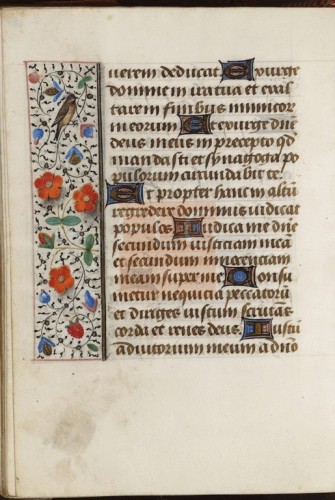 uerem deducat. Exurge
domine in ira tua et exal
tare in finibus inimicor
meorum Et exurge dn̄e
deus meus in precepto qd
mandasti et synagoga po
pulorum circundabit te.
Et propter hanc in altū
regredere dominus iudicat
populos Iudica me dn̄e
secundum iusticiam meā
et secundum innocentiam
meam super me Consu
metur nequicia peccatorū
et diriges iustum scrutās
corda et renes deus. Iustū
adiutorium meum a dn̄o